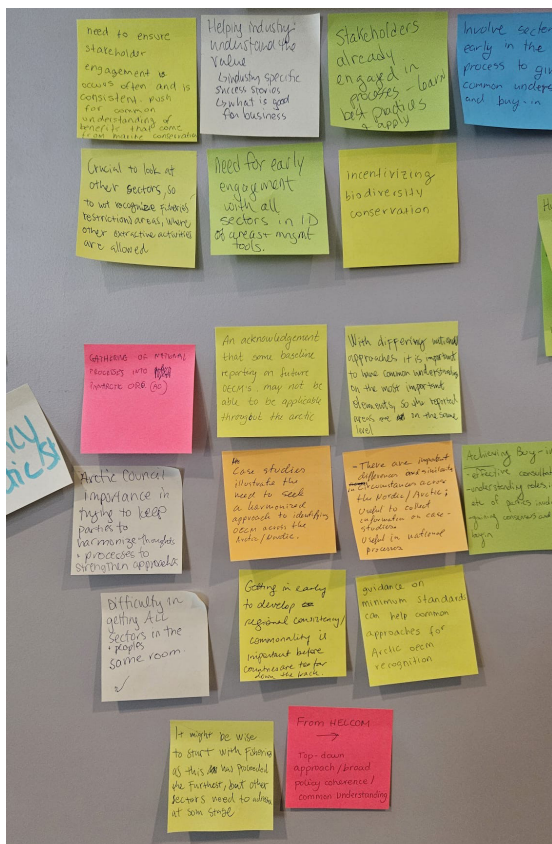 need to ensure
stakeholder
engagement is
occurs often and is
consistent. push
for common
understanding of
benefits that come
from marine conservation
Helping industry
understand the
value
↳ industry specific
success stories
↳ what is good
for business
Stakeholders
already
engaged in
processes - learn
best practices
+ apply
Involve sectors
early in the
process to
common
and buy-in
Crucial to look at
other sectors, so
to not recognize fisheries
restriction areas, where
other extractive activities
are allowed
Need for early
engagement
with all
sectors in ID
of areas + mgmt
tools.
incentivizing
biodiversity
conservation
GATHERING OF NATIONAL
PROCESSES INTO
ORG. (AC)
An acknowledgement
that some baseline
reporting on future
OECM's may not be
able to be applicable
throughout the arctic
With differing national
approaches it is important
to have common understanding
on the most important
elements, so the reported
areas are in the same
level
ncy
tic/st
Arctic Council
importance in
trying to keep
parties to
harmonize thoughts
• processes to
strengthen approaches
Case studies
illustrate the
need to seek
a harmonized
approach to identifying
OECM across the
Arctic/Nordic.
- There are important
differences and similarly
circumstances across
the Nordic/Arctic;
Useful to collect
information on case-
studies.
Useful in national
processes
Achieving Buy-in
- effective
- understanding roles,
etc of parties
Difficulty in
getting ALL
sectors in the
• peoples
same room.
✓
Getting in early
to develop
regional consistency/
commonality is
important before
countries are too far
down the track.
guidance on
minimum standards
can help common
approaches for
Arctic OECM
recognition
It might be wise
to start with fisheries
as this has proceeded
the furthest, but other
sectors need to
at som stage.
From HELCOM
→
Top-down
approach/broad
policy coherence/
common understanding